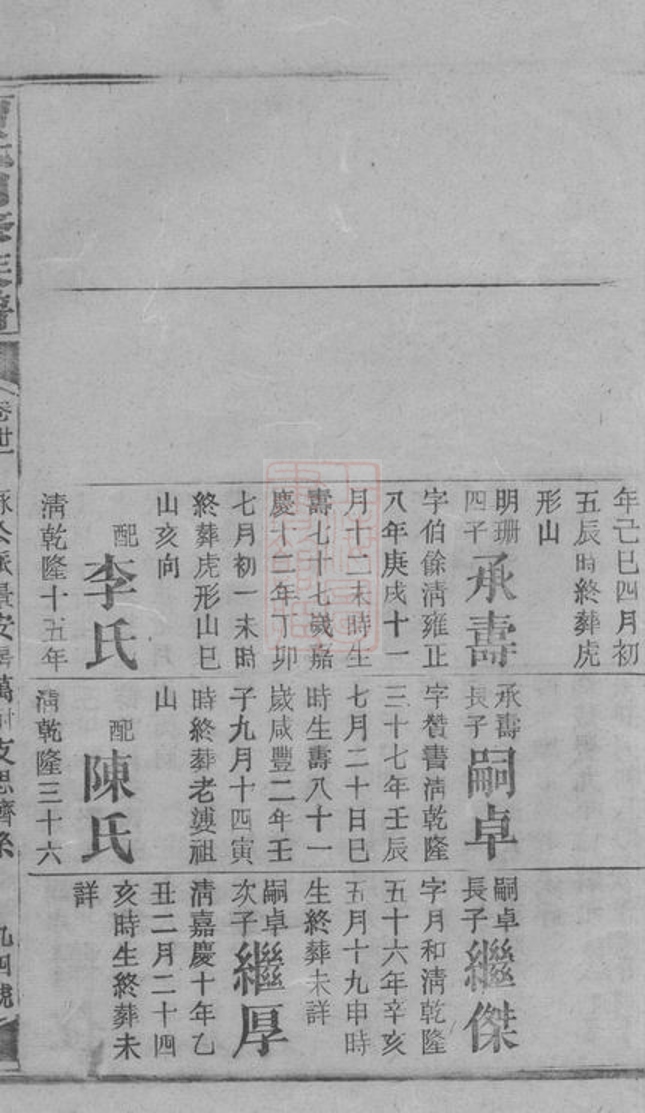 年己巳四月初
五辰時終葬虎
形山
明珊
四子
承壽
字伯餘清雍正
八年庚戌十一
月十二未時生
壽七十七歲嘉
慶十二年丁卯
七月初一未時
終葬虎形山巳
山亥向
配
李氏
清乾隆十五年
承壽
長子
嗣卓
字贊書清乾隆
三十七年壬辰
七月二十日巳
時生壽八十一
歲咸豐二年壬
子九月十四寅
時終葬老婆祖
山
配
陳氏
清乾隆三十六
嗣卓
長子
繼傑
字月和清乾隆
五十六年辛亥
五月十九申時
生終葬未詳
嗣卓
次子
繼厚
清嘉慶十年乙
丑二月二十四
亥時生終葬未
詳
卷廿一